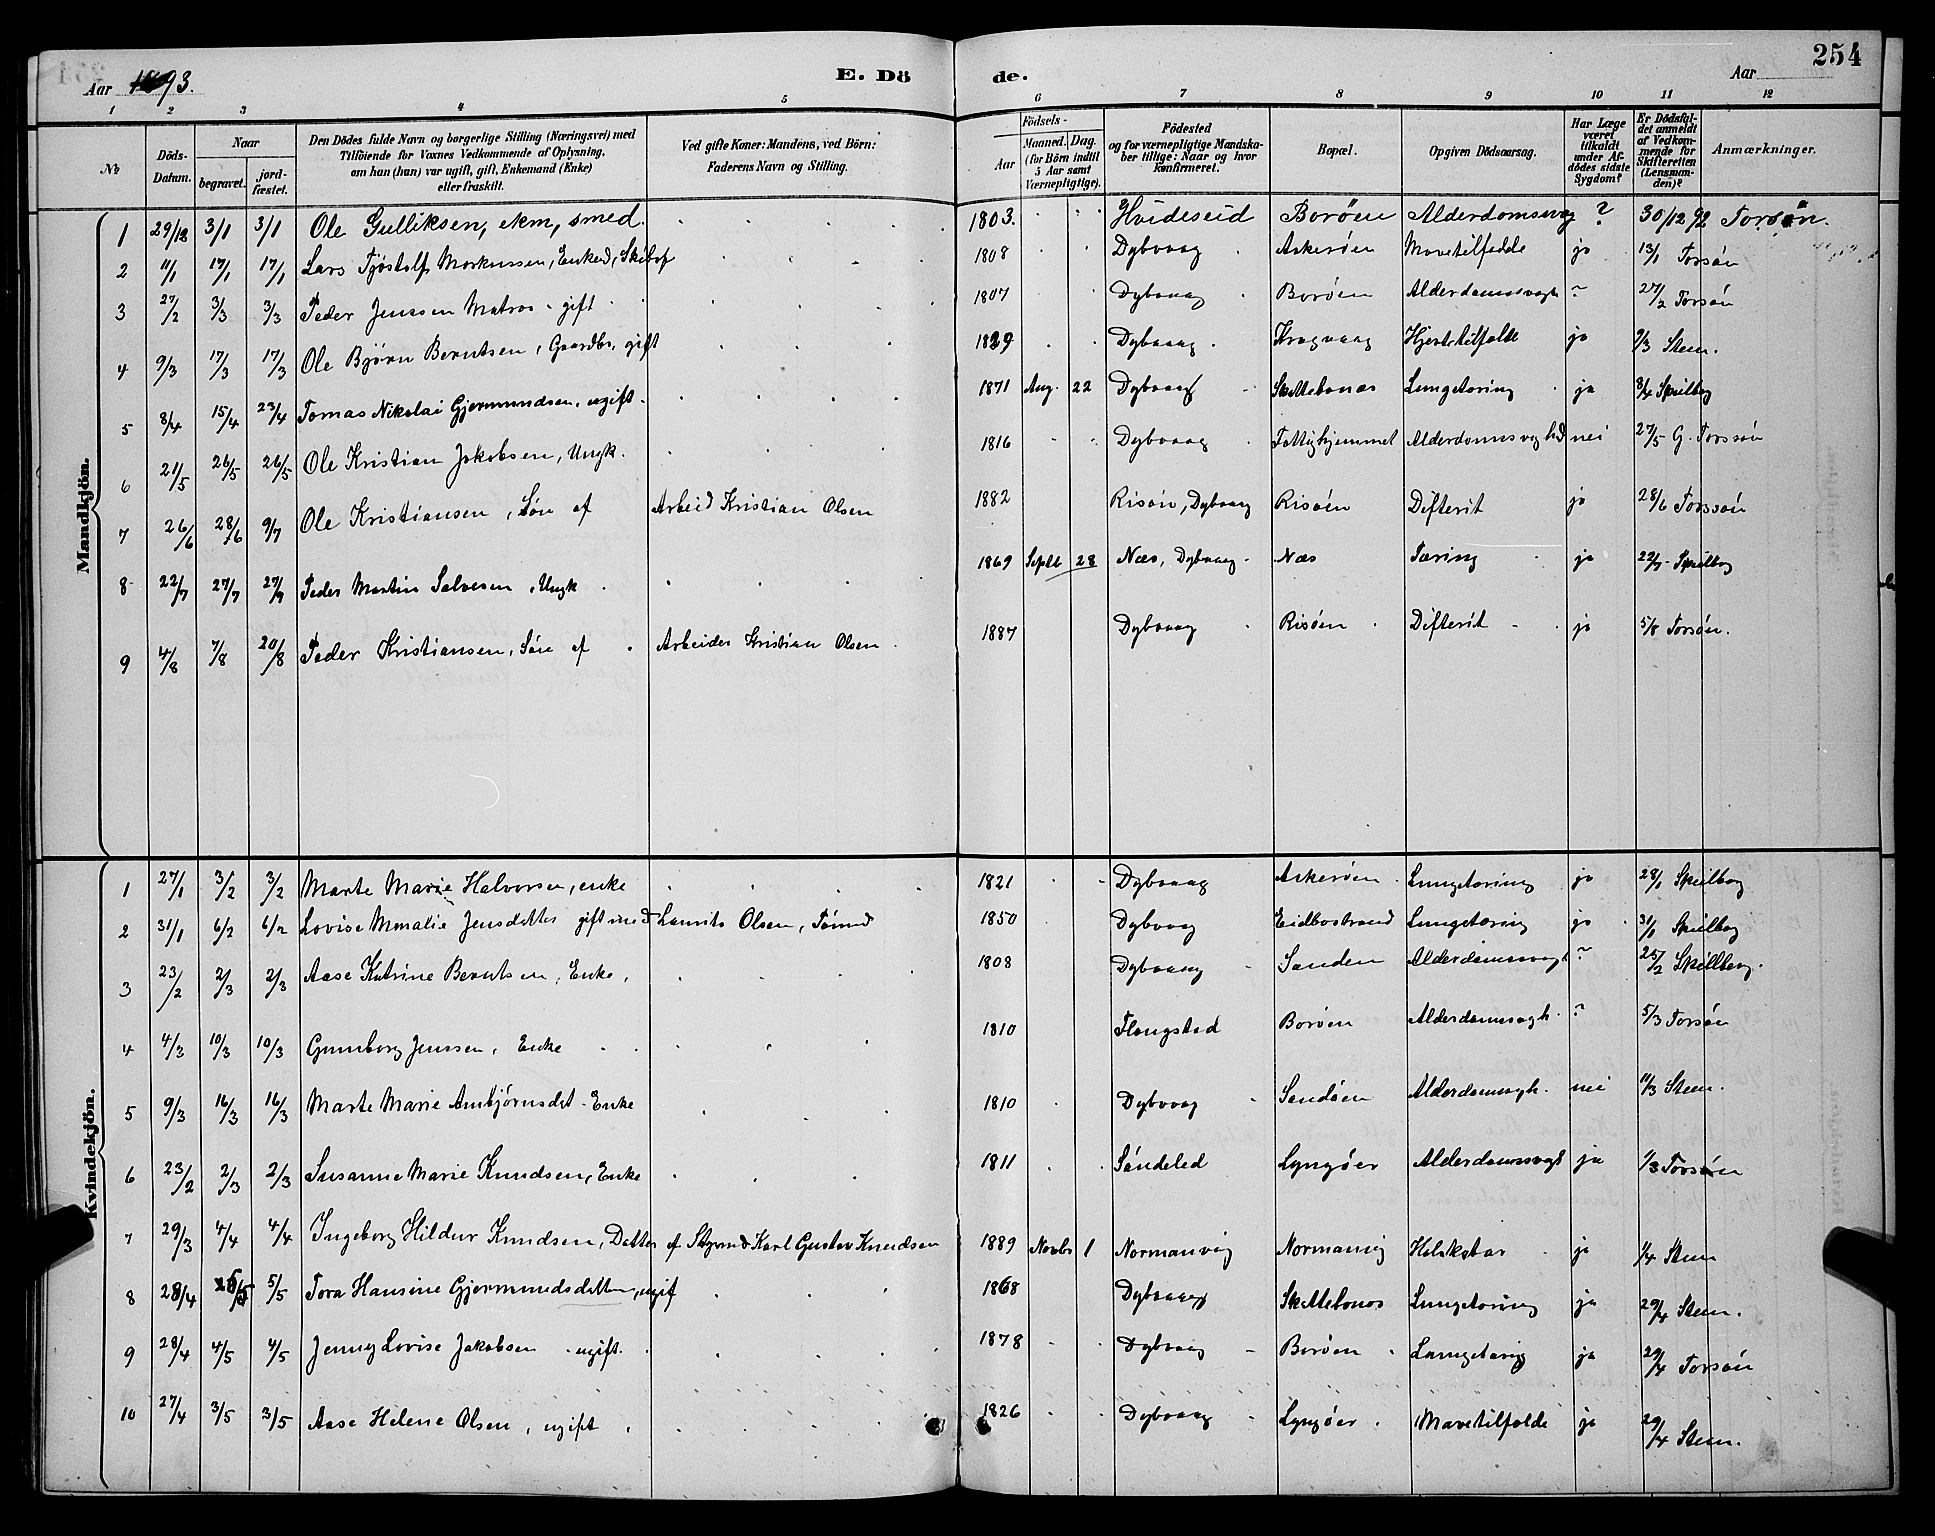 Aar 1893. E. Dö de. Aar 254
1 2 3 4 5 6 7 8 9 10 11 12
№ Döds-Datum. Naar begravet. jord-fæstet. Den Dödes fulde Navn og borgerlige Stilling (Næringsvei) med Tilföiende for Voxnes Vedkommende af Oplysning, om han (hun) var ugift, gift, Enkemand (Enke) eller fraskilt. Ved gifte Koner: Mandens, ved Börn: Faderens Navn og Stilling. Födsels- Aar Maaned. Dag. (for Börn indtil 5 Aar samt Værnepligtige). Födested og for værnepligtige Mandskaber tillige: Naar og hvor konfirmeret. Bopæl. Opgiven Dödsaarsag. Har Læge været tilkaldt under Afdödes sidste Sygdom? Er Dödsfaldet anmeldt af Vedkommende for Skifteretten (Lensmanden)? Anmærkninger.
Mandkjön.
1 29/12 3/1 3/1 Ole Gulliksen, ekm, smed. 1803. Hvideseid Borøen Alderdomssvag ? 30/12 92 Torsøn.
2 11/1 17/1 17/1 Lars Tjøstolf Markussen, Enked, 1808 Dybvaag Askerøen Mavetilfælde ja 13/1 Torsøn
3 27/2 3/3 3/3 Peder Jenssen Matros - gift 1807 Dybvaag Borøen Alderdomssvagh ? 27/2 Torsøn
4 9/3 17/3 17/3 Ole Bjørn Berntsen, Gaardbr, gift 1829 Dybvaag Kragvaag Hjertetilfælde ja 9/3 Steen.
5 8/4 15/4 23/4 Tomas Nikolai Gjermundsen, ugift. 1871 Aug. 22 Dybvaag Skottebonæs Lungetæring ja 8/4 Skeilbog
6 21/5 26/5 26/5 Ole Kristian Jakobsen, Ungk. 1816 Dybvaag Fattighjemmet Alderdomssvaghed nei 27/5 G. Torssøn
7 26/6 28/6 9/7 Ole Kristiansen, Søn af Arbeid Kristian Olsen 1882 Risøen, Dybvaag Risøen Difterit ja 28/6 Torssøn
8 22/7 27/7 27/7 Peder Martin Salvesen, Ungk. 1869 Septb 28 Næs, Dybvaag Næs Tæring ja 22/7 Skeilbog
9 4/8 7/8 20/8 Peder Kristiansen, Søn af Arbeider Kristian Olsen 1887 Dybvaag Risøen Difterit ja 5/8 Torsøn.
Kvindekjön.
1 27/1 3/2 3/2 Marte Marie Halvorsen, enke 1821 Dybvaag Askerøen Lungetæring ja 28/1 Skeilbog
2 31/1 6/2 6/2 Lovise Monalie Jensdatter gift med Laurits Olsen, Tømmd 1850 Dybvaag Eidbostrand Lungetæring ja 31/1 Skeilbog
3 23/2 2/3 2/3 Aase Katrine Berntsen, Enke, 1808 Dybvaag Sanden Alderdomssvagh ? 25/2 Skeilberg.
4 4/3 10/3 10/3 Gunnborg Jenssen, Enke 1810 Flangstad Borøen Alderdomssvagh. ? 5/3 Torsøn
5 9/3 16/3 16/3 Marte Marie Ambjørnsdat - Enke 1810 Dybvaag Sandøen Alderdomsvagh. nei 11/3 Steen.
6 23/2 2/3 2/3 Susanne Marie Knudsen, Enke 1811 Søndeled Lyngøer Alderdomssvagh ja 1/3 Torsøn
7 29/3 4/4 4/4 Ingeborg Hildur Knudsen, Datter af Styrmd Karl Gustav Knudsen 1889 Novbr 1 Normanvig Normanvig Halskatar ja 1/4 Steen
8 28/4 5/5 5/5 Tora Hansine Gjermundsdatter, ugift 1868 Dybvaag Skottebonæs Lungetæring ja 29/4 Steen.
9 28/4 4/5 4/5 Jenny Lovise Jakobsen - ugift. 1878 Dybvaag Borøen Lungetæring ja 29/4 Torsøn
10 27/4 3/5 3/5 Aase Helene Olsen, ugift 1826 Dybvaag Lyngøer Mavetilfælde ja 29/4 Steen.